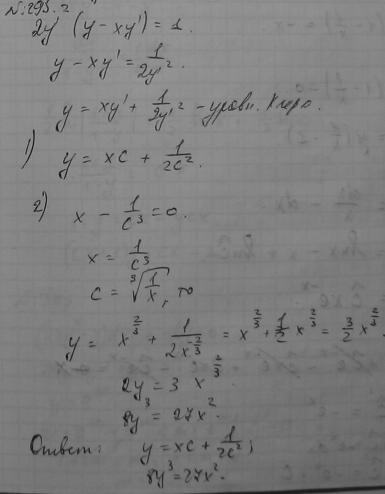 №293.2
2y' (y - xy') = 1.
y - xy' = 1/(2y'²)
y = xy' + 1/(2y'²) - уравн. Клеро.
1) y = xc + 1/(2c²).
2) x - 1/c³ = 0.
x = 1/c³
c = ∛(1/x), то
y = x^(2/3) + 1/(2x^(-2/3)) = x^(2/3) + 1/2 x^(2/3) = 3/2 x^(2/3)
2y = 3 x^(2/3).
8y³ = 27x².
Ответ: y = xc + 1/(2c²);
8y³ = 27x².